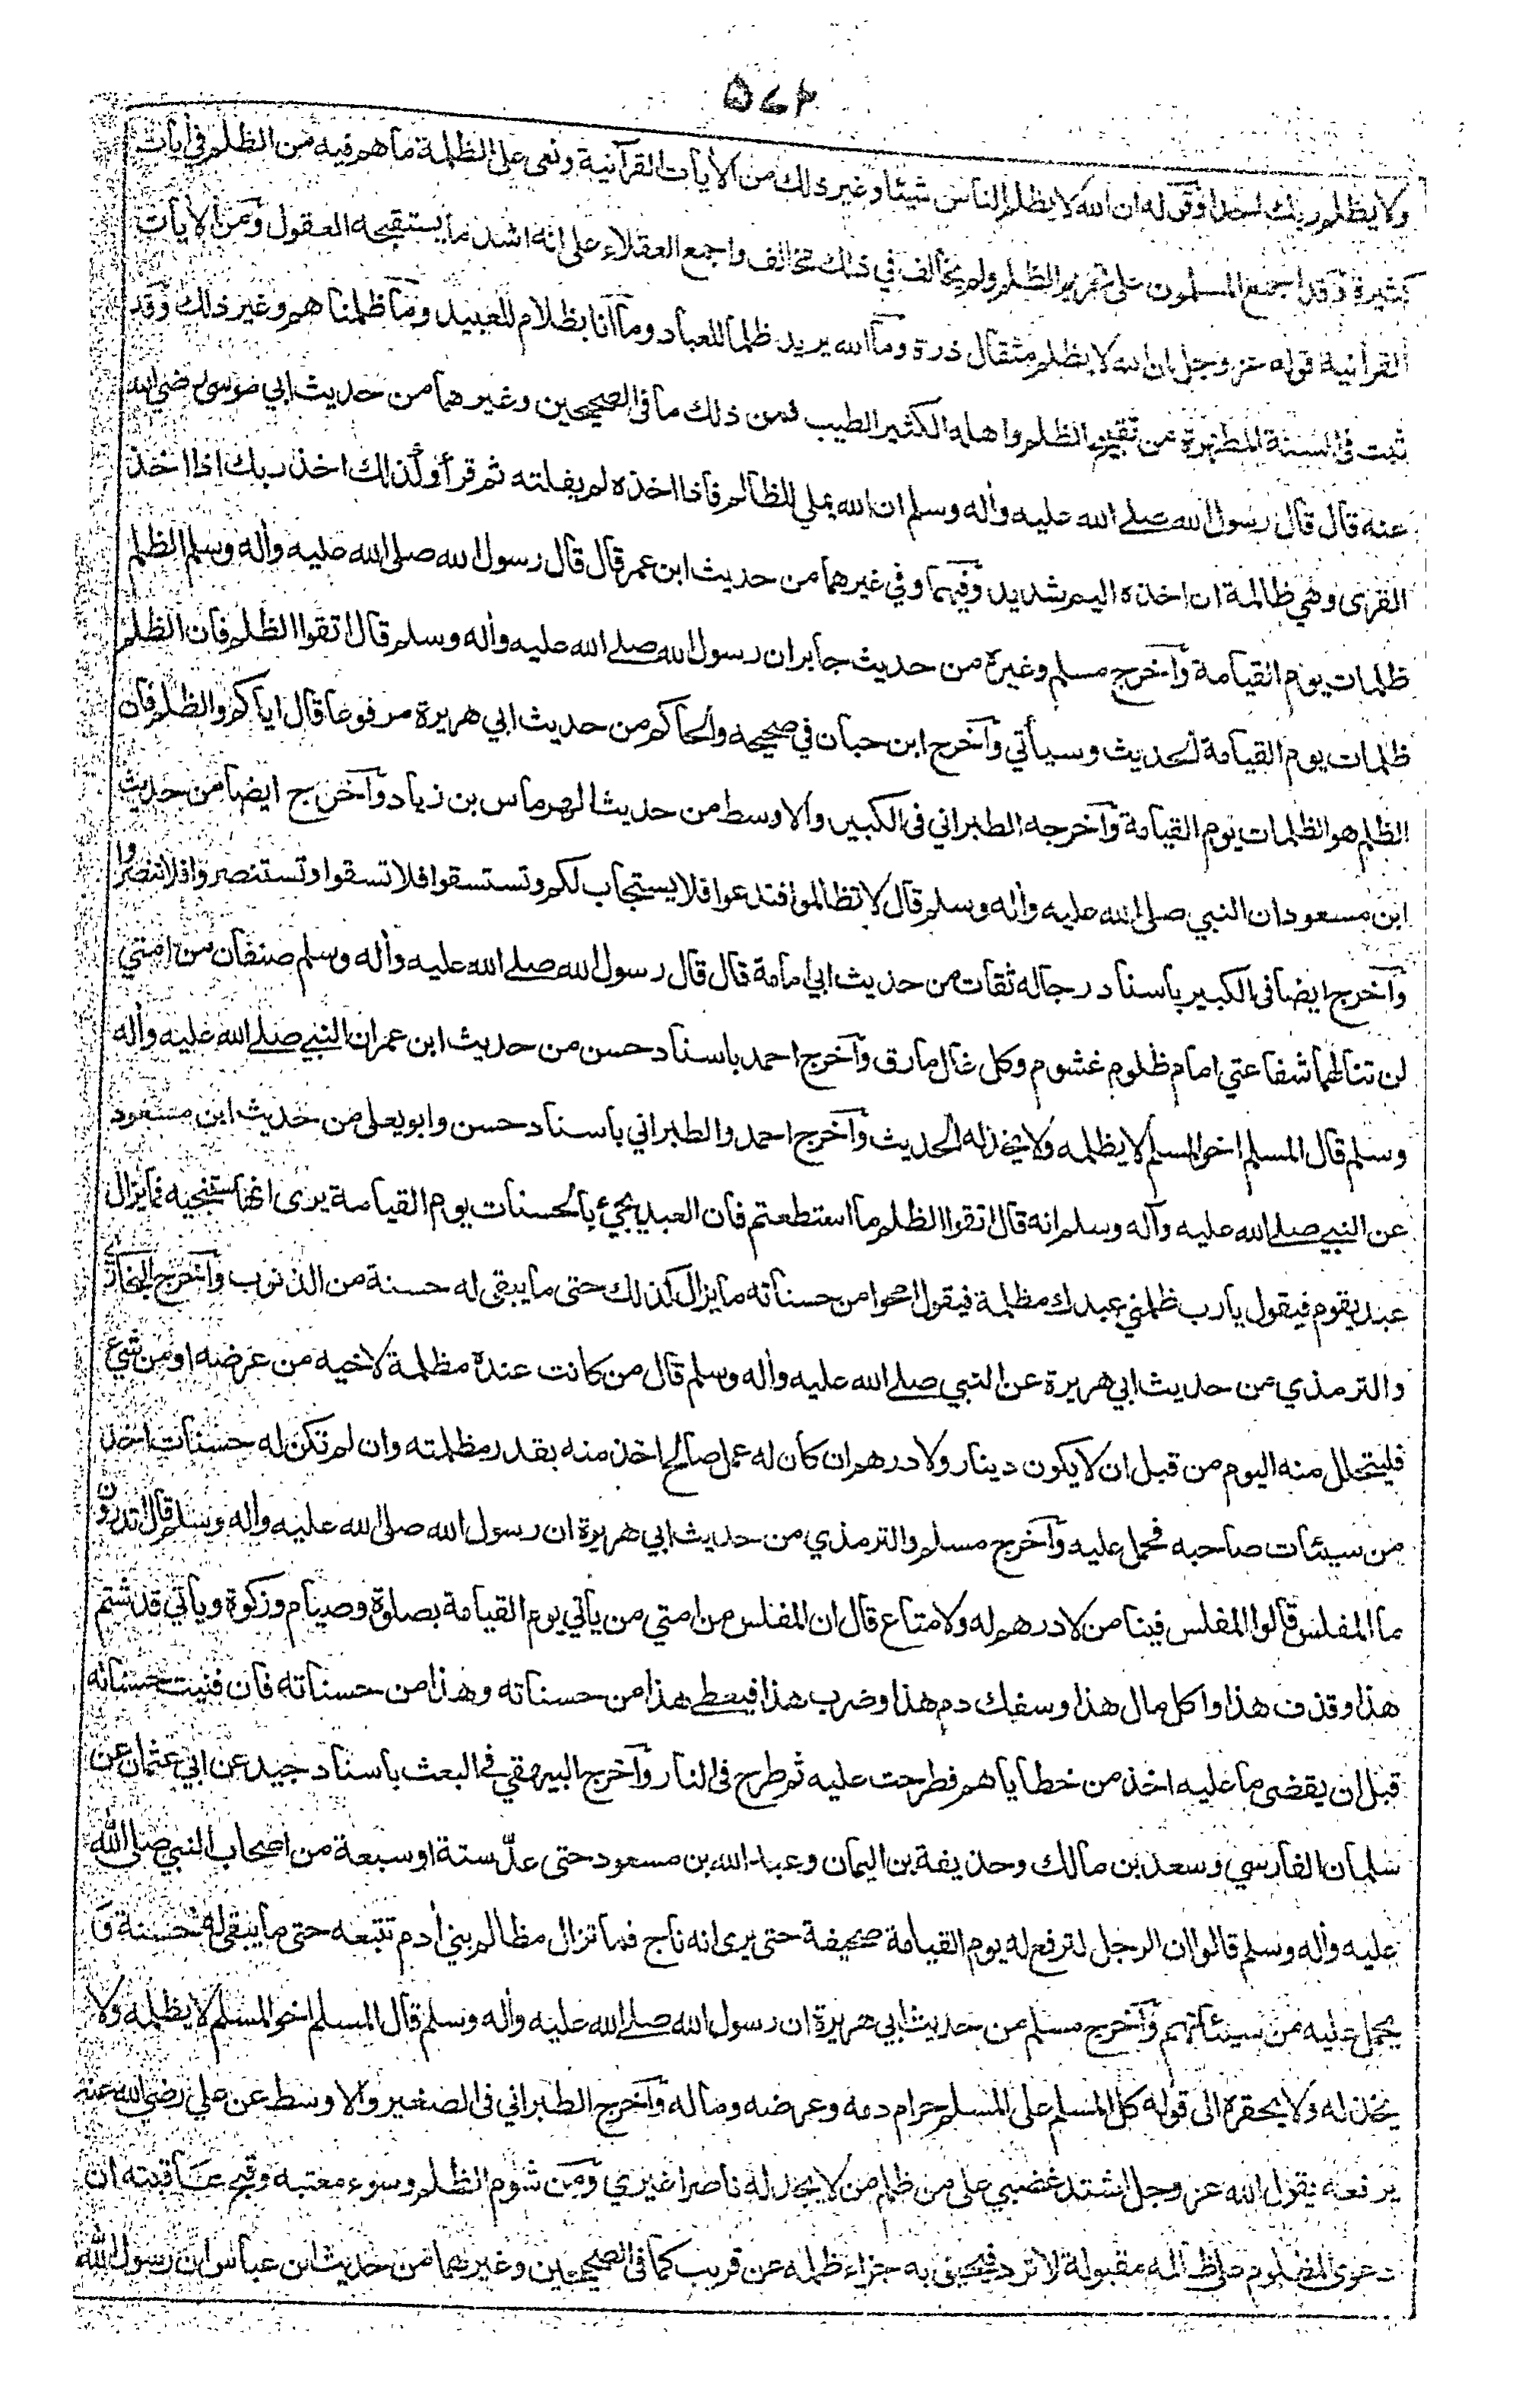 ٥٧٢
ولا يظلم ربك احدا وقوله ان الله لا يظلم الناس شيئا وغير ذلك من الأيات القرآنية ونعى على الظلمة ما هم فيه من الظلم في أيات
كثيرة وقد اجمع المسلمون على تحريم الظلم ولم يخالف في ذلك مخالف واجمع العقلاء على انه اشد ما يستقبحه العقول ومن الأيات
القرأنية قوله عز وجل ان الله لا يظلم مثقال ذرة وما الله يريد ظلما للعباد وما أنا بظلام للعبيد وما ظلمناهم وغير ذلك وقد
ثبت فى السنة المطهرة من تقبيح الظلم واهله الكثير الطيب فمن ذلك ما فى الصحيحين وغيرهما من حديث ابي موسى رضي الله
عنه قال قال رسول الله صلے الله عليه وأله وسلم ان الله يملي للظالم فاذا اخذه لم يفلته ثم قرأ وكذلك اخذ ربك اذا اخذ
القرى وهي ظالمة ان اخذه اليم شديد وفيهما وفي غيرهما من حديث ابن عمر قال قال رسول الله صلى الله عليه وأله وسلم الظلم
ظلمات يوم القيامة وأخرج مسلم وغيره من حديث جابر ان رسول الله صلے الله عليه وأله وسلم قال اتقوا الظلم فان الظلم
ظلمات يوم القيامة الحديث وسيأتي وأخرج ابن حبان في صحيحه والحاكم من حديث ابي هريرة مرفوعا قال اياكم والظلم فان
الظلم هو الظلمات يوم القيامة وأخرجه الطبراني فى الكبير والاوسط من حديث الهرماس بن زياد وأخرج ايضا من حديث
ابن مسعود ان النبي صلى الله عليه وأله وسلم قال لا تظالموا فتدعوا فلا يستجاب لكم وتستسقوا فلا تسقوا وتستنصروا فلا تنصروا
وأخرج ايضا فى الكبير باسناد رجاله ثقات من حديث ابي امامة قال قال رسول الله صلے الله عليه وأله وسلم صنفان من امتي
لن تنالهما شفاعتي امام ظلوم غشوم وكل غال مارق وأخرج احمد باسناد حسن من حديث ابن عمر ان النبي صلے الله عليه وأله
وسلم قال المسلم اخو المسلم لا يظلمه ولا يخذله الحديث وأخرج احمد والطبراني باسناد حسن وابو يعلى من حديث ابن مسعود
عن النبي صلے الله عليه وآله وسلم انه قال اتقوا الظلم ما استطعتم فان العبد يجيء بالحسنات يوم القيامة يرى انها ستنجيه فما يزال
عبد يقوم فيقول يارب ظلمني عبدك مظلمة فيقول امحوا من حسناته ما يزال كذلك حتى ما يبقى له حسنة من الذنوب وأخرج البخاري
والترمذي من حديث ابي هريرة عن النبي صلے الله عليه وأله وسلم قال من كانت عنده مظلمة لاخيه من عرضه او من شيء
فليتحلل منه اليوم من قبل ان لا يكون دينار ولا درهم ان كان له عمل صالح اخذ منه بقدر مظلمته وان لم تكن له حسنات اخذ
من سيئات صاحبه فحمل عليه وأخرج مسلم والترمذي من حديث ابي هريرة ان رسول الله صلى الله عليه وأله وسلم قال اتدرون
ما المفلس قالوا المفلس فينا من لا درهم له ولا متاع قال ان المفلس من امتي من يأتي يوم القيامة بصلوة وصيام وزكوة ويأتي قد شتم
هذا وقذف هذا واكل مال هذا وسفك دم هذا وضرب هذا فيعطے هذا من حسناته وهذا من حسناته فان فنيت حسناته
قبل ان يقضى ما عليه اخذ من خطاياهم فطرحت عليه ثم طرح فى النار وأخرج البيهقي في البعث باسناد جيد عن ابي عثمان عن
سلمان الفارسي وسعد بن مالك وحذيفة بن اليمان وعبد الله بن مسعود حتى عدّ ستة او سبعة من اصحاب النبي صلى الله
عليه وأله وسلم قالوا ان الرجل لترفع له يوم القيامة صحيفة حتى يرى انه ناج فما تزال مظالم بني أدم تتبعه حتى ما يبقى له حسنة و
يحمل عليه من سيئاتهم وأخرج مسلم من حديث ابي هريرة ان رسول الله صلے الله عليه وأله وسلم قال المسلم اخو المسلم لا يظلمه ولا
يخذله ولا يحقره الى قوله كل المسلم على المسلم حرام دمه وعرضه وماله وأخرج الطبراني فى الصغير والاوسط عن علي رضي الله عنه
يرفعه يقول الله عز وجل اشتد غضبي على من ظلم من لا يجد له ناصرا غيري ومن شؤم الظلم وسوء مغتبه وقبح عاقبته ان
دعوى المظلوم على ظالمه مقبولة لا ترد فيجزى به جزاء ظلمه عن قريب كما فى الصحيحين وغيرهما من حديث ابن عباس ان رسول الله